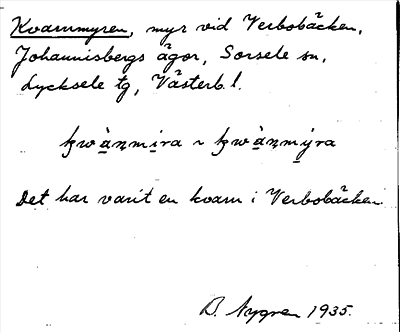 Kvarnmyren, myr vid Verbobäcken,
Johannisbergs ägor, Sorsele sn,
Lycksele tg, Västerb. l.
kwànmira ~ kwànmýra
Det har varit en kvarn i Verbobäcken
D. Nygren 1935.